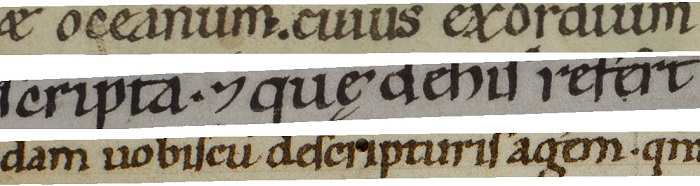 æ oceanum. cuius exordium
scripta. ⁊ quę dehıſ refert
dam uobiſcū deſcripturiſ agem. qm